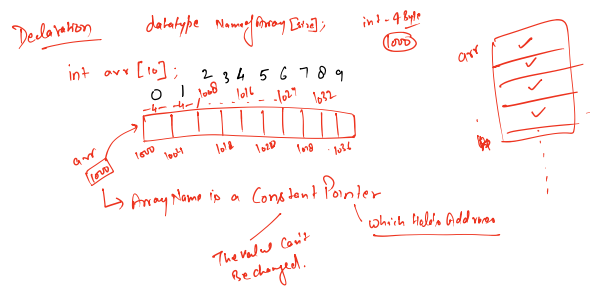 Declaration datatype NameofArray[size]; int - 4 Byte
1000
int arr [10];
arr
0 1 2 3 4 5 6 7 8 9
4 4 1008 1016 1024 1032
1000 1004 1012 1020 1036
arr
1000
Array Name is a Constant Pointer
Which Holds Address
The value Can't
Be changed.